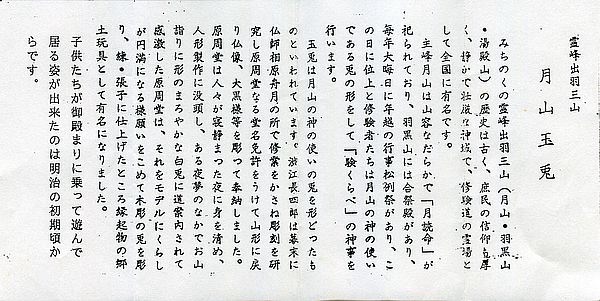 霊峰出羽三山
月山玉兎
みちのくの霊峰出羽三山(月山・羽黒山
・湯殿山)の歴史は古く、庶民の信仰も厚
く、静かで壮厳な神域で、修験道の霊場と
して全国に有名です。
主峰月山は山容なだらかで「月読命」が
祀られており、羽黒山には合祭殿があり、
毎年大晦日に年越の行事松例祭があり、こ
の日に位上と修験者たちは月山の神の使い
である兎の形をして、「験くらべ」の神事を
行います。
玉兎は月山の神の使いの兎を形どったも
のといわれています。渋江長四郎は幕末に
仏師相原舟月の所で修業をかさね彫刻を研
究し原周堂なる堂名免許をうけて山形に戻
り仏像、大黒様等を彫って奉納しました。
原周堂は人々が寝静まった夜に身を清め、
人形製作に没頭し、ある夜夢のなかでお山
詣りに形のまろやかな白兎に道案内されて
感激した原周堂は、それをモデルにくらし
が円満になる様願いをこめて木彫の兎を彫
り、練・張子に仕上げたところ縁起物の郷
土玩具として有名になりました。
子供たちが御殿まりに乗って遊んで
居る姿が出来たのは明治の初期頃か
らです。